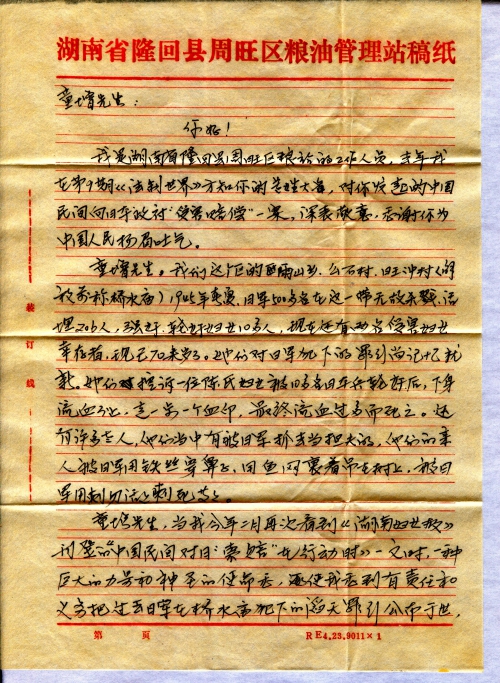 湖南省隆回县周旺区粮油管理站稿纸
童增先生：
你好！
我是湖南省隆回县周旺区粮站的工作人员，去年我
在第9期《法制世界》方知你的尊姓大名，对你发起的中国
民间向日本政府"受害赔偿"一案，深表敬意，感谢你为
中国人民扬眉吐气。
童增先生。我们这个区的山乡，公石村，旺冲村（解
放前称桥水庙）1945年，日军500多名在这一带无故杀戮，活
埋206人，强奸、轮奸妇女10多人，现在还有名受害妇女
幸存着，现已70来岁了。她们对日军犯下的罪行尚记忆犹
新。她们控诉一位陈氏妇女被10多名日本兵轮奸后，下身
流血不止，走一步一个血印，最终流血过多而死亡。还
有许多老人，他们当中有被日军抓去当挑夫的，他们的亲
人被日军用铁丝穿鼻子，用鱼网裹着吊在树上，被日
军用刺刀活活刺死等等。
童增先生，当我今年二月再次看到《湖南妇女报》
刊登的"中国民间对日'索赔'在行动时》一文时，一种
巨大的力量和神圣的使命感，迫使我感到有责任和
义务把过去日军在桥水庙犯下的滔天罪行公布于世，
装
订
线
第 页
RE4.23.9011×1